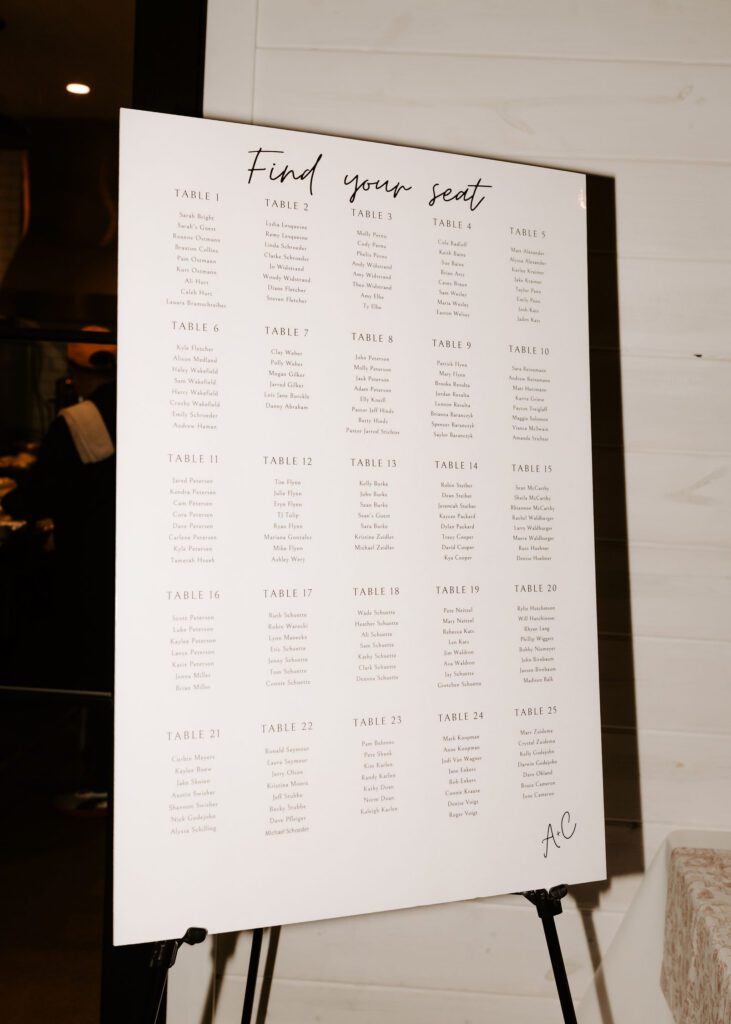 Find your seat
TABLE 1
Sarah Bright
Sarah's Guest
Roxanne Ostmann
Braxton Collins
Pam Ostmann
Kurt Ostmann
Ali Hurt
Caleb Hurt
TABLE 2
Lydia Lesqueire
Remy Lesqueire
Linda Schroeder
Clarke Schroeder
Jo Widstrand
Woody Widstrand
Diane Fletcher
Steven Fletcher
TABLE 3
Molly Pernu
Cody Pernu
Phelix Pernu
Andy Widstrand
Amy Widstrand
Theo Widstrand
Amy Elke
Ty Elke
TABLE 4
Cole Radloff
Keith Bains
Sue Bains
Brian
Casey
Sam Wesler
Maria Wesler
TABLE 5
Matt Alexander
Alyssa Alexander
Karlee Kramer
Jake Kramer
Taylor
Emily
Josh Katt
Jaden Katt
TABLE 6
Kyle Fletcher
Alison Medland
Haley Wakefield
Sam Wakefield
Harry Wakefield
Crosby Wakefield
Emily Schroeder
Andrew Haman
TABLE 7
Clay Weber
Polly Weber
Megan Gilker
Jarrod Gilker
Lois Jane
Danny Abraham
TABLE 8
John Peterson
Molly Peterson
Jack Peterson
Adam Peterson
Elly Knoll
Pastor Jeff Hinds
Betty Hinds
Pastor Jarrod Stichter
TABLE 9
Patrick Flynn
Mary Flynn
Brooke Resulta
Jordan Resulta
Lennon Resulta
Brianna Baranczyk
Spencer Baranczyk
Saylor Baranczyk
TABLE 10
Sara Reinemann
Andrew Reinemann
Matt Hartmann
Karria Griese
Payton Treiglaff
Maggie Solomon
Vianca McIwain
Amanda Stichter
TABLE 11
Jared Peterson
Kendra Peterson
Cam Peterson
Cora Peterson
Dave Peterson
Carlene Peterson
Kyle Peterson
Tamerah
TABLE 12
Tim Flynn
Julie Flynn
Eryn Flynn
TJ Tulip
Ryan Flynn
Mariana Gonzalez
Mike Flynn
Ashley Wery
TABLE 13
Kelly Burke
John Burke
Sean Burke
Sean's Guest
Sara Burke
Kristine Zeidler
Michael Zeidler
TABLE 14
Robin Steiber
Dean Steiber
Jeremiah Steiber
Kaycee Packard
Dylan Packard
Tracy Cooper
David Cooper
Kya Cooper
TABLE 15
Sean McCarthy
Sheila McCarthy
Rhiannon McCarthy
Rachel Waldburger
Larry Waldburger
Maura Waldburger
Russ Huebner
Denise Huebner
TABLE 16
Scott Peterson
Luke Peterson
Kaylee Peterson
Lanya Peterson
Katie Peterson
Jenna Miller
Brian Miller
TABLE 17
Ruth Schuette
Robin Warecki
Lynn Manecke
Eric Schuette
Jenny Schuette
Tom Schuette
Connie Schuette
TABLE 18
Wade Schuette
Heather Schuette
Ali Schuette
Sam Schuette
Kathy Schuette
Clark Schuette
Deanna Schuette
TABLE 19
Pete Neitzel
Mary Neitzel
Rebecca Katt
Len Katt
Jim Waldron
Ava Waldron
Jay Schuette
Gretchen Schuette
TABLE 20
Rylie Hutchinson
Will Hutchinson
Rhyan Lang
Phillip Wiggert
Bobby Niemeyer
John Birnbaum
Jansen Birnbaum
Madison Balk
TABLE 21
Corbin Meyers
Kaylee Boew
Jake Skoien
Austin Swisher
Shannon Swisher
Nick Godejohn
Alyssa Schilling
TABLE 22
Ronald Seymour
Laura Seymour
Jerry Olson
Kristina Moore
Jeff Stubbe
Becky Stubbe
Dave Pfleiger
Michael Schroeder
TABLE 23
Pam Behrens
Pete Shunk
Kim Karlen
Randy Karlen
Kathy Doan
Norm Doan
Kaleigh Karlen
TABLE 24
Mark Koopman
Anne Koopman
Jodi Van Wagner
Jane Eakers
Bob Eakers
Connie Krause
Denise Voigt
Roger Voigt
TABLE 25
Marc Zuidema
Crystal Zuidema
Kelly Godejohn
Darwin Godejohn
Dave Okland
Bruce Cameron
June Cameron
A+C